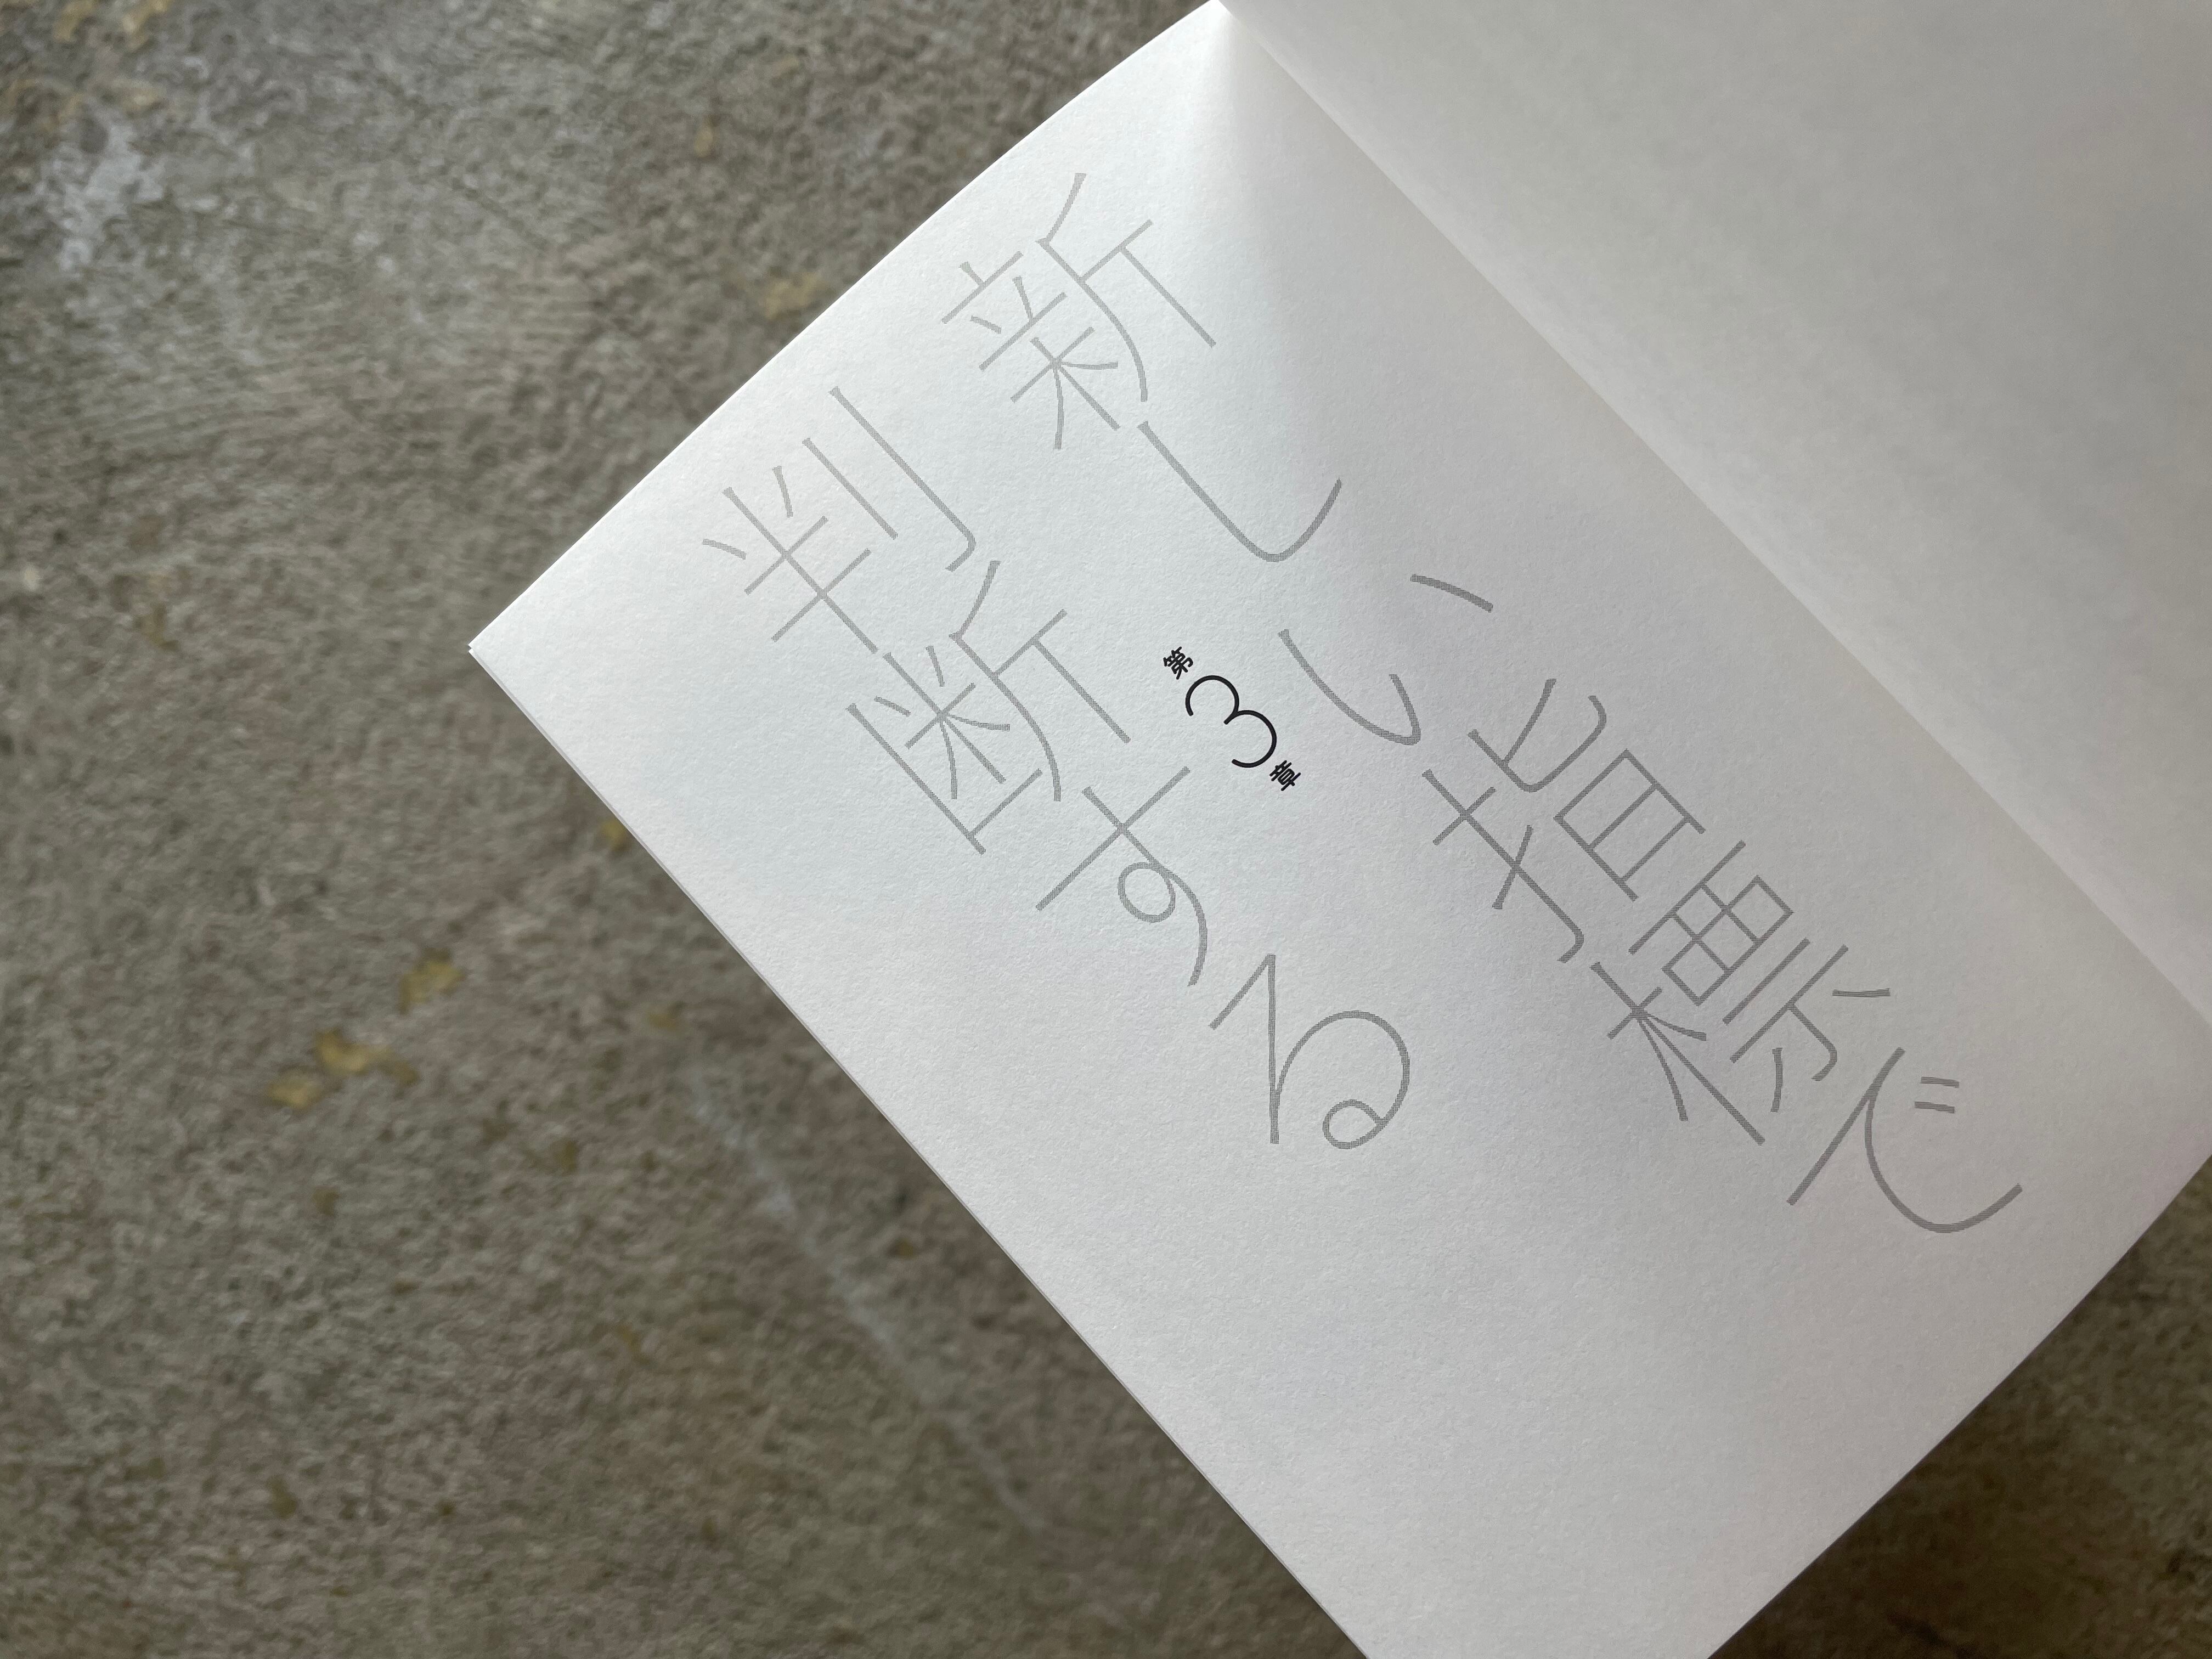 新しい指標で
第3章
判断する